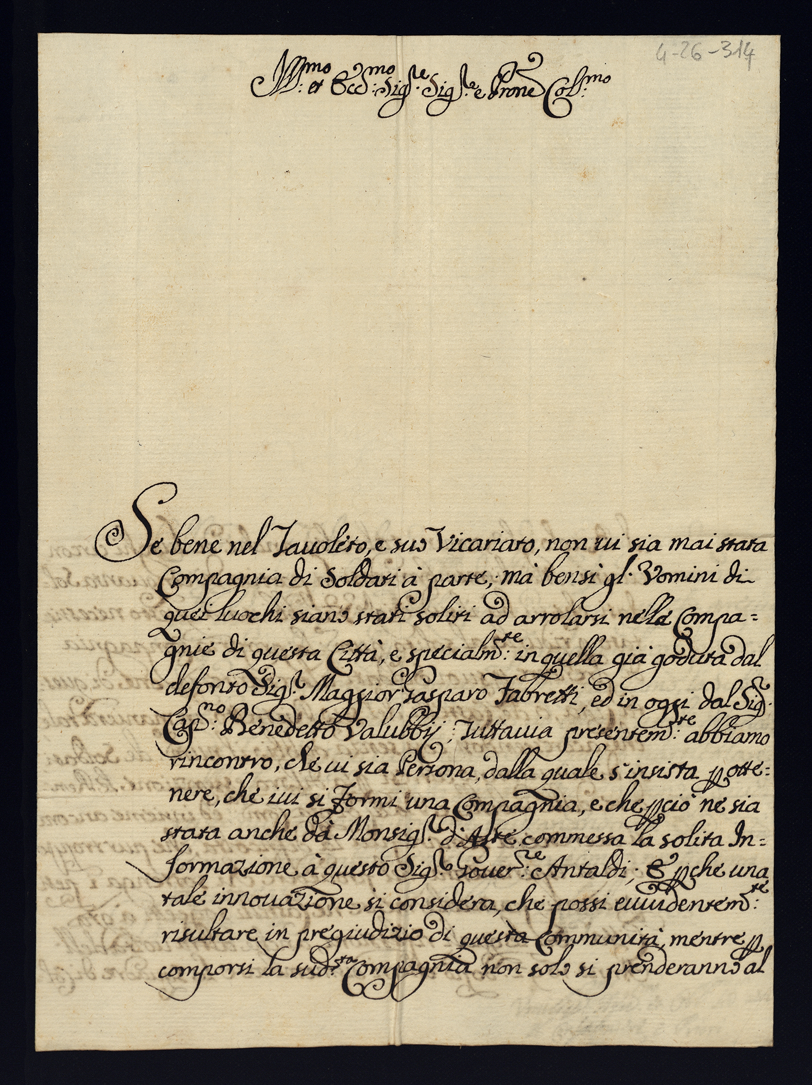 4-26-314
Ill:mo et Ecc:mo Sig:re Sig:re e Prone Col:mo
Se bene nel Tavoleto, e suo Vicariato, non vi sia mai stata
Compagnia di Soldati à parte, mà bensì gl' Vomini di
quei luochi siano stati soliti ad arrolarsi nelle Compa=
gnie di questa Città, e specialm:te in quella già goduta dal
defonto Sig:r Maggior Gasparo Fabretti, ed in oggi dal Sig:r
Cap:no Benedetto Valubbij; Tuttavia presentem:te abbiamo
rincontro, che vi sia Persona, dalla quale s'insista p otte=
nere, che ivi si formi una Compagnia, e che p ciò ne sia
stata anche dà Monsig:r d'Aste commessa la solita In=
formazione à questo Sig:r Gover:re Antaldi; E p che una
tale innovazione si considera, che possi evvidentem:te
risultare in pregiudizio di questa Communità, mentre p
comporsi la sud:ta Compagnia non solo si prenderanno al